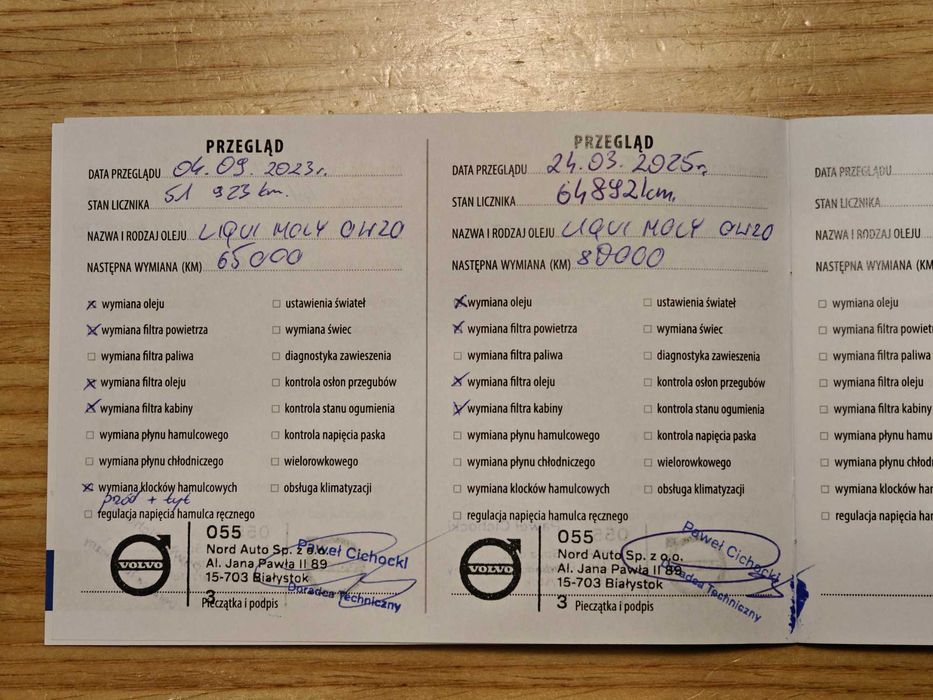 PRZEGLĄD
DATA PRZEGLĄDU 04.09.2023r.
STAN LICZNIKA 51 923 km.
NAZWA I RODZAJ OLEJU LIQUI MOLY 0W20
NASTĘPNA WYMIANA (KM) 65000
x wymiana oleju
☐ ustawienia świateł
x wymiana filtra powietrza
☐ wymiana świec
☐ wymiana filtra paliwa
☐ diagnostyka zawieszenia
x wymiana filtra oleju
☐ kontrola osłon przegubów
x wymiana filtra kabiny
☐ kontrola stanu ogumienia
☐ wymiana płynu hamulcowego
☐ kontrola napięcia paska
☐ wymiana płynu chłodniczego
☐ wielorowkowego
x wymiana klocków hamulcowych
☐ obsługa klimatyzacji
przód + tył
☐ regulacja napięcia hamulca ręcznego
VOLVO
055
Nord Auto Sp. z o.o.
Al. Jana Pawła II 89
15-703 Białystok
3
Paweł Cichocki
Doradca Techniczny
Pieczątka i podpis
PRZEGLĄD
DATA PRZEGLĄDU 24.03.2025r.
STAN LICZNIKA 64892km.
NAZWA I RODZAJ OLEJU LIQUI MOLY 0W20
NASTĘPNA WYMIANA (KM) 80000
x wymiana oleju
☐ ustawienia świateł
x wymiana filtra powietrza
☐ wymiana świec
☐ wymiana filtra paliwa
☐ diagnostyka zawieszenia
x wymiana filtra oleju
☐ kontrola osłon przegubów
x wymiana filtra kabiny
☐ kontrola stanu ogumienia
☐ wymiana płynu hamulcowego
☐ kontrola napięcia paska
☐ wymiana płynu chłodniczego
☐ wielorowkowego
☐ wymiana klocków hamulcowych
☐ obsługa klimatyzacji
☐ regulacja napięcia hamulca ręcznego
VOLVO
055
Nord Auto Sp. z o.o.
Al. Jana Pawła II 89
15-703 Białystok
3
Paweł Cichocki
Doradca Techniczny
Pieczątka i podpis
DATA PRZEGLĄDU
STAN LICZNIKA
NAZWA I RODZAJ OLEJU
NASTĘPNA WYMIANA (KM
☐ wymiana oleju
☐ wymiana filtra powiet
☐ wymiana filtra paliwa
☐ wymiana filtra oleju
☐ wymiana filtra kabiny
☐ wymiana płynu hamu
☐ wymiana płynu chłod
☐ wymiana klocków ham
☐ regulacja napięcia ha